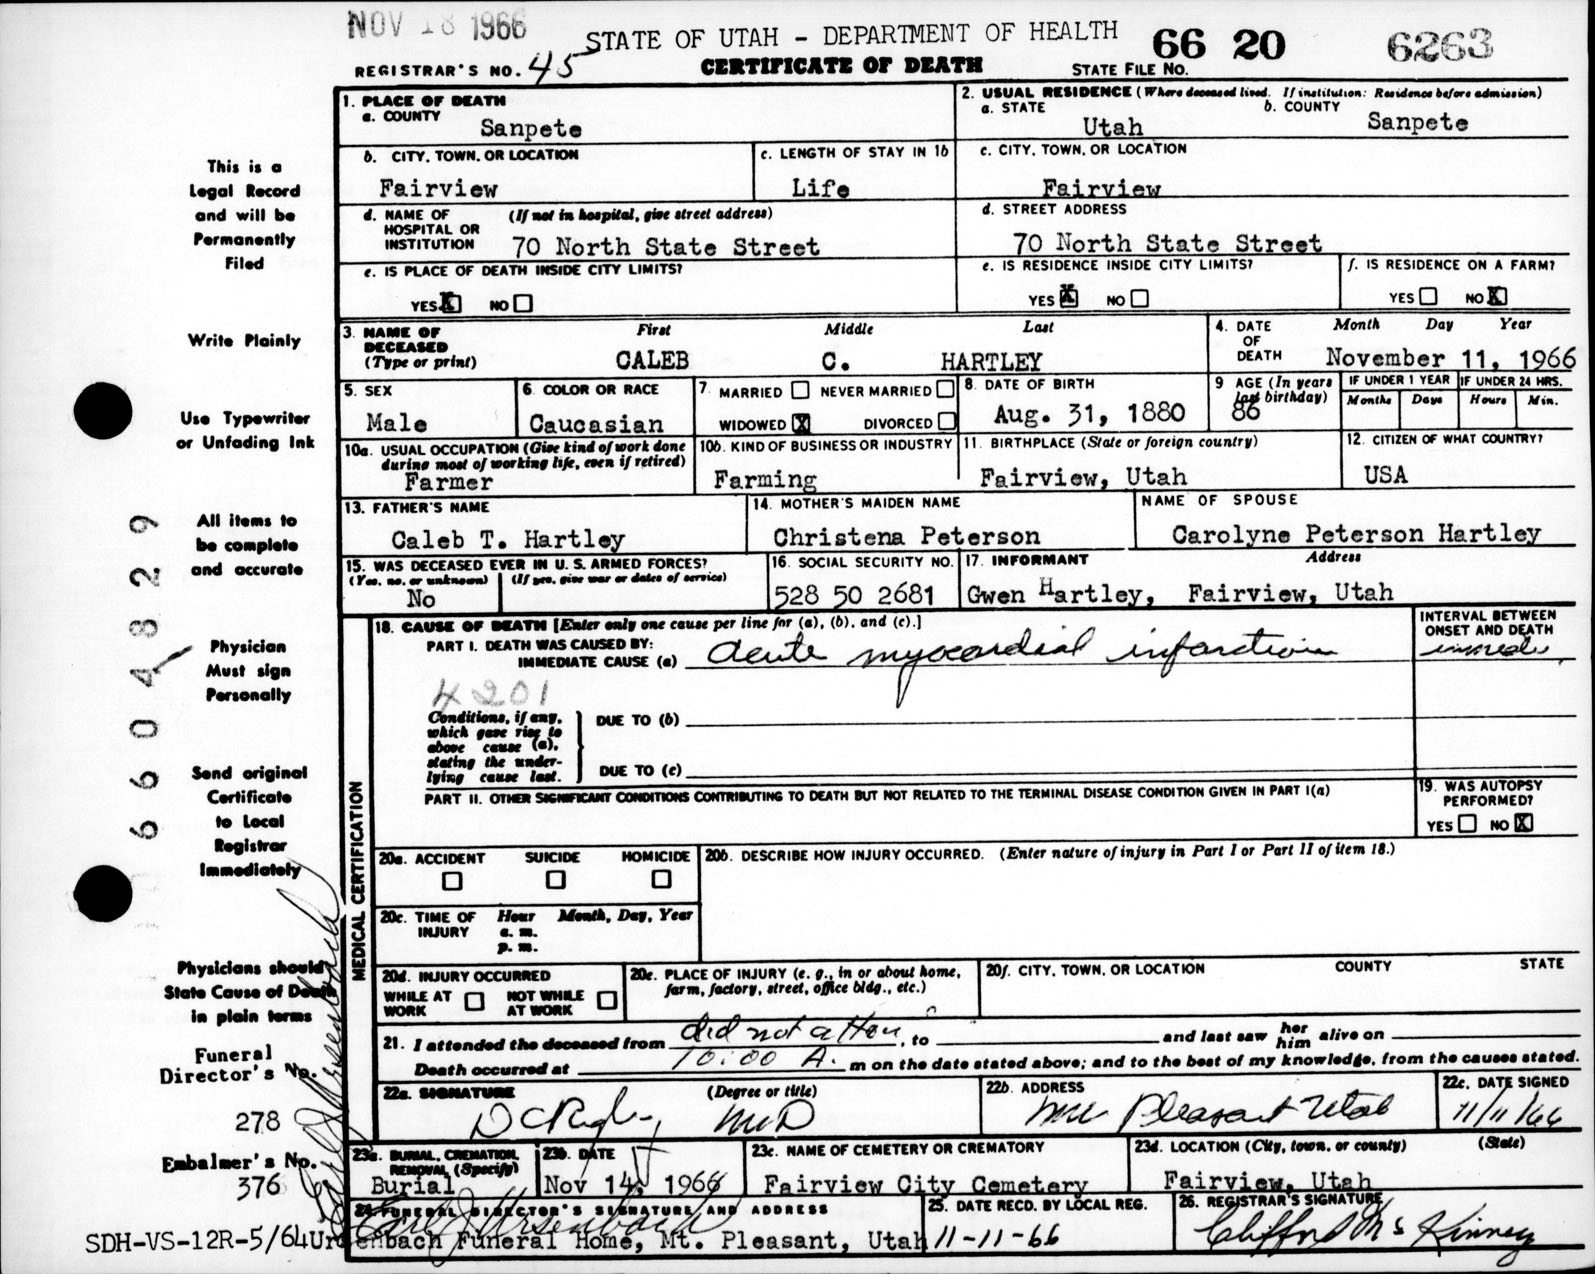 NOV 18 1966
STATE OF UTAH - DEPARTMENT OF HEALTH 66 20 6263
REGISTRAR'S NO. 45 CERTIFICATE OF DEATH STATE FILE NO.
1. PLACE OF DEATH
a. COUNTY
Sanpete
2. USUAL RESIDENCE (Where deceased lived. If institution: Residence before admission)
a. STATE b. COUNTY
Utah Sanpete
b. CITY, TOWN, OR LOCATION
Fairview
c. LENGTH OF STAY IN 1b
Life
c. CITY, TOWN, OR LOCATION
Fairview
d. NAME OF HOSPITAL OR INSTITUTION (If not in hospital, give street address)
70 North State Street
d. STREET ADDRESS
70 North State Street
e. IS PLACE OF DEATH INSIDE CITY LIMITS?
YES X NO
e. IS RESIDENCE INSIDE CITY LIMITS?
YES X NO
f. IS RESIDENCE ON A FARM?
YES NO X
3. NAME OF DECEASED (Type or print)
First Middle Last
CALEB C. HARTLEY
4. DATE OF DEATH
Month Day Year
November 11, 1966
5. SEX
Male
6. COLOR OR RACE
Caucasian
7. MARRIED NEVER MARRIED
WIDOWED X DIVORCED
8. DATE OF BIRTH
Aug. 31, 1880
9 AGE (In years last birthday)
86
IF UNDER 1 YEAR
Months Days
IF UNDER 24 HRS.
Hours Min.
10a. USUAL OCCUPATION (Give kind of work done
during most of working life, even if retired)
Farmer
10b. KIND OF BUSINESS OR INDUSTRY
Farming
11. BIRTHPLACE (State or foreign country)
Fairview, Utah
12. CITIZEN OF WHAT COUNTRY?
USA
13. FATHER'S NAME
Caleb T. Hartley
14. MOTHER'S MAIDEN NAME
Christena Peterson
NAME OF SPOUSE
Carolyne Peterson Hartley
15. WAS DECEASED EVER IN U. S. ARMED FORCES?
(Yes, no, or unknown) (If yes, give war or dates of service)
No
16. SOCIAL SECURITY NO.
528 50 2681
17. INFORMANT Address
Gwen Hartley, Fairview, Utah
MEDICAL CERTIFICATION
18. CAUSE OF DEATH [Enter only one cause per line for (a), (b), and (c).]
PART I. DEATH WAS CAUSED BY:
IMMEDIATE CAUSE (a) acute myocardial infarction
INTERVAL BETWEEN
ONSET AND DEATH
4201
Conditions, if any,
which gave rise to
above cause (a),
stating the under-
lying cause last.
DUE TO (b)
DUE TO (c)
PART II. OTHER SIGNIFICANT CONDITIONS CONTRIBUTING TO DEATH BUT NOT RELATED TO THE TERMINAL DISEASE CONDITION GIVEN IN PART I(a)
19. WAS AUTOPSY
PERFORMED?
YES NO X
20a. ACCIDENT SUICIDE HOMICIDE
20b. DESCRIBE HOW INJURY OCCURRED. (Enter nature of injury in Part I or Part II of item 18.)
20c. TIME OF INJURY
Hour Month, Day, Year
a. m.
p. m.
20d. INJURY OCCURRED
WHILE AT WORK NOT WHILE AT WORK
20e. PLACE OF INJURY (e. g., in or about home,
farm, factory, street, office bldg., etc.)
20f. CITY, TOWN, OR LOCATION COUNTY STATE
21. I attended the deceased from did not atten, to and last saw her him alive on
Death occurred at 10:00 A. m on the date stated above; and to the best of my knowledge, from the causes stated.
22a. SIGNATURE (Degree or title)
MD
22b. ADDRESS
Mt Pleasant Utah
22c. DATE SIGNED
11/11/66
23a. BURIAL, CREMATION,
REMOVAL (Specify)
Burial
23b. DATE
Nov 14, 1966
23c. NAME OF CEMETERY OR CREMATORY
Fairview City Cemetery
23d. LOCATION (City, town, or county) (State)
Fairview, Utah
24 FUNERAL DIRECTOR'S SIGNATURE AND ADDRESS
Ursenbach Funeral Home, Mt. Pleasant, Utah
25. DATE RECD. BY LOCAL REG.
11-11-66
26. REGISTRAR'S SIGNATURE
Clifford Mc Kinney
This is a
Legal Record
and will be
Permanently
Filed
Write Plainly
Use Typewriter
or Unfading Ink
All items to
be complete
and accurate
Physician
Must sign
Personally
Send original
Certificate
to Local
Registrar
Immediately
Physicians should
State Cause of Death
in plain terms
Funeral
Director's No.
278
Embalmer's No.
376
Earl J Ursenbach
66 04829
SDH-VS-12R-5/64